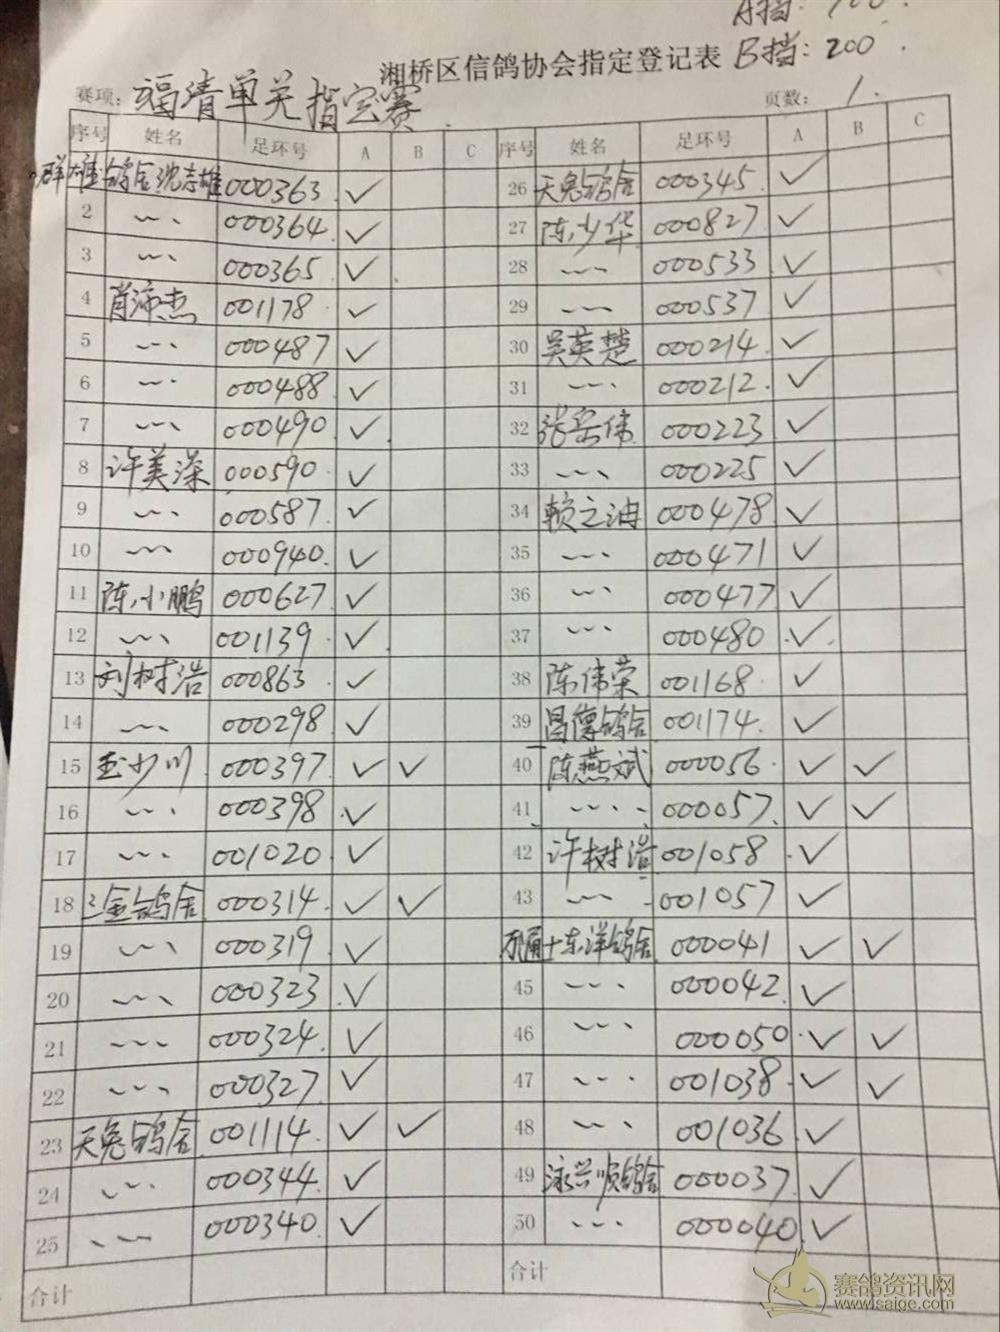 A挡: 100.
湘桥区信鸽协会指定登记表 B挡: 200.
赛项: 福清单关指定赛. 页数: 1.
序号 姓名 足环号 A B C 序号 姓名 足环号 A B C
群雄鸽舍沈志雄 000363 ✓ 26 天兔鸽舍 000345 ✓
2 〃 000364 ✓ 27 陈少华 000827 ✓
3 〃 000365 ✓ 28 〃 000533 ✓
4 肖沛杰 001178 ✓ 29 〃 000537 ✓
5 〃 000487 ✓ 30 吴英楚 000214 ✓
6 〃 000488 ✓ 31 〃 000212 ✓
7 〃 000490 ✓ 32 张岳伟 000223 ✓
8 许美深 000590 ✓ 33 〃 000225 ✓
9 〃 000587 ✓ 34 赖之 000478 ✓
10 〃 000940 ✓ 35 〃 000471 ✓
11 陈小鹏 000627 ✓ 36 〃 000477 ✓
12 〃 001139 ✓ 37 〃 000480 ✓
13 刘树浩 000863 ✓ 38 陈伟荣 001168 ✓
14 〃 000298 ✓ 39 昌德鸽舍 001174 ✓
15 少川 000397 ✓ ✓ 40 陈燕斌 000056 ✓ ✓
16 〃 000398 ✓ 41 〃 000057 ✓ ✓
17 〃 001020 ✓ 42 许树浩 001058 ✓
18 三金鸽舍 000314 ✓ ✓ 43 〃 001057 ✓
19 〃 000319 ✓ 东洋鸽舍 000041 ✓ ✓
20 〃 000323 ✓ 45 〃 000042 ✓
21 〃 000324 ✓ 46 〃 000050 ✓ ✓
22 〃 000327 ✓ 47 〃 001038 ✓ ✓
23 天兔鸽舍 001114 ✓ ✓ 48 〃 001036 ✓
24 〃 000344 ✓ 49 泳兴顺鸽舍 000037 ✓
25 〃 000340 ✓ 50 〃 000040 ✓
合计 合计
赛鸽资讯网
www.saige.com